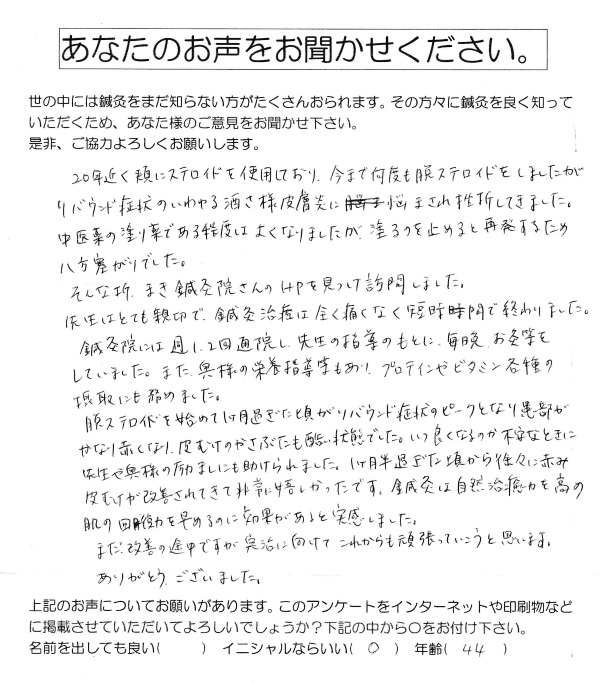 あなたのお声をお聞かせください。
世の中には鍼灸をまだ知らない方がたくさんおられます。その方々に鍼灸を良く知って
いただくため、あなた様のご意見をお聞かせ下さい。
是非、ご協力よろしくお願いします。
20年近く頬にステロイドを使用しており、今まで何度も脱ステロイドをしましたが
リバウンド症状のいわゆる酒さ様皮膚炎に悩まされ挫折してきました。
中医薬の塗り薬である程度は良くなりましたが、塗るのを止めると再発するため
八方塞がりでした。
そんな折、まき鍼灸院さんのHPを見つけ訪問しました。
先生はとても親切で、鍼灸治療は全く痛くなく短時間で終わりました。
鍼灸院には週1、2回通院し、先生の指導のもとに、毎晩、お灸等を
していました。また、奥様の栄養指導等もあり、プロテインやビタミン各種の
摂取にも努めました。
脱ステロイドを始めて1ヶ月過ぎた頃がリバウンド症状のピークとなり患部が
かなり赤くなり、皮むけやかさぶたも酷い状態でした。いつ良くなるのか不安なときに
先生や奥様の励ましにも助けられました。1ヶ月半過ぎた頃から徐々に赤み
皮むけが改善されてきて非常に嬉しかったです。鍼灸は自然治癒力を高め
肌の回復力を早めるのに効果があると実感しました。
まだ改善の途中ですが完治に向けてこれからも頑張っていこうと思います。
ありがとうございました。
上記のお声についてお願いがあります。このアンケートをインターネットや印刷物など
に掲載させていただいてよろしいでしょうか?下記の中から〇をお付け下さい。
名前を出しても良い(　　) イニシャルならいい( ○ ) 年齢( 44 )